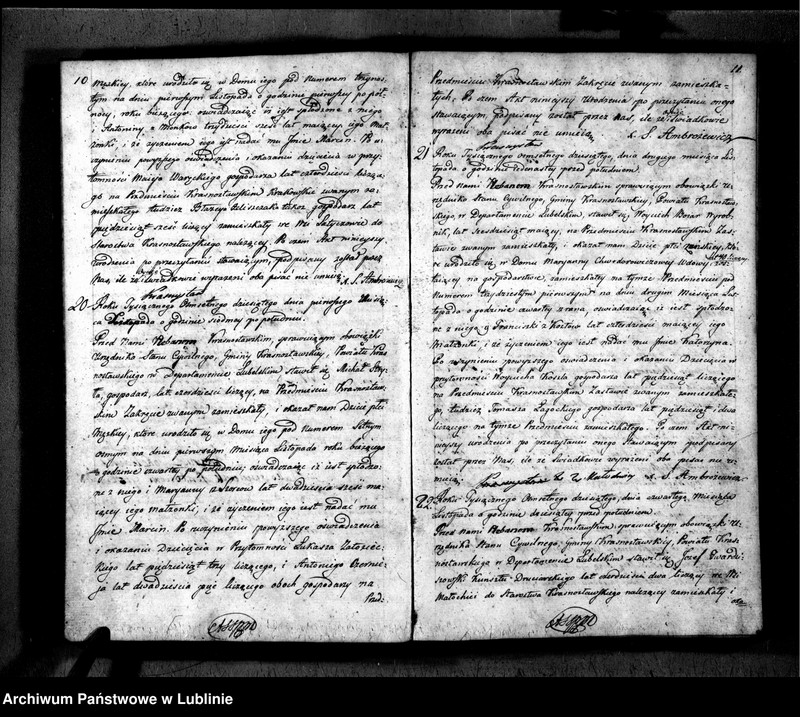 10
Męskiey, które urodziło się w Domu iego pod Numerem trzyna-
stym na dniu pierwszym Listopada o godzinie pierwszey po pół-
nocy, roku bieżącego: oświadczaiąc iż iest spłodzone z niego
i Antoniny z lat maiącey, iego Mał-
żonki, i że życzeniem iego iest nadać mu Jmie Marcin. Po u-
czynieniu powyższego oświadczenia i okazaniu dziecięcia w przy-
tomności Macieja gospodarza lat czterdzieści liczą-
cego na Przedmieściu Krasnostawskim Krakowskie zwanym za-
mieszkałego tudzież Błażeja także gospodarz lat
pięćdziesiąt sześć liczący zamieszkały we Wsi do
Starostwa Krasnostawskiego należącey. Po czem Akt ninieyszy
urodzenia po przeczytaniu stawaiącym, podpisany został przez
Nas, ile że świadkowie wyrażeni oba pisać nie umieią. X. S. Ambrożewicz
Krasnystaw
20 Roku Tysiącznego Ośmsetnego dziesiątego dnia pierwszego Miesią-
ca Listopada o godzinie siódmey po południu.
Przed Nami Plebanem Krasnostawskim, sprawuiącym obowiązki
Urzędnika Stanu Cywilnego, Gminy Krasnostawskiey, Powiatu Kras-
nostawskiego w Departamencie Lubelskim stawił się Michał
gospodarz, lat czterdzieści liczący, na Przedmieściu Krasnostaw-
skim Zakręcie zwanym zamieszkały, i okazał nam Dziecię płci
Męskiey, które urodziło się w Domu iego pod Numerem Setnym
ósmym na dniu pierwszym Miesiąca Listopada roku bieżącego
o godzinie czwartey po południu; oświadczaiąc iż iest spłodzo-
ne z niego i Maryanny z lat dwadzieścia sześć ma-
iącey iego małżonki; i że życzeniem iego iest nadać mu
Jmie Marcin. Po uczynieniu powyższego oświadczenia
i okazaniu Dziecięcia w Przytomności Łukasza
lat pięćdziesiąt trzy liczącego, i Antoniego
lat dwadzieścia pięć liczącego obóch gospodarzy na
Przed:
11
Przedmieściu Krasnostawskim Zakręcie zwanym zamieszka-
łych. Po czem Akt ninieyszy Urodzenia po przeczytaniu onego
stawaiącym, podpisany został przez Nas, ile że świadkowie
wyrażeni oba pisać nie umieią. X. S. Ambrożewicz
Krasnystaw
21 Roku Tysiącznego ośmsetnego dziesiątego, dnia drugiego miesiąca Lis-
topada o godzinie iedenastey przed południem.
Przed Nami Plebanem Krasnostawskim sprawuiącym obowiązki U-
rzędnika Stanu Cywilnego, Gminy Krasnostawskiey, Powiatu Krasnostaw-
skiego, w Departamencie Lubelskim, stawił się Woyciech Wyrob-
nik, lat sześćdziesiąt maiący, na Przedmieściu Krasnostawskim Zas-
tawie zwanym zamieszkały, i okazał nam Dziecię płci żeńskiey, któ-
re urodziło się w Domu Maryanny Wdowy,
na gospodarstwie, zamieszkałey na tymże Przedmieściu pod
Numerem trzydziestym pierwszym na dniu drugim Miesiąca Lis-
topada o godzinie czwartey zrana, oświadczaiąc iż iest spłodzo-
ne z niego i Franciszki z lat czterdzieści maiącey iego
Małżonki, i że życzeniem iego iest nadać mu Jmie Katarzyna.
Po uczynieniu powyższego oświadczenia i okazaniu Dziecięcia w
przytomności Woyciecha gospodarza lat pięćdziesiąt liczącego
na Przedmieściu Krasnostawskim Zastawie zwanym zamieszkałe-
go, tudzież Tomasza gospodarza lat pięćdziesiąt i dwa
liczącego na tymże Przedmieściu zamieszkałego. Po czem Akt ni-
nieyszy urodzenia po przeczytaniu onego stawaiącym podpisany
został przez Nas, ile że świadkowie wyrażeni oba pisać nie u-
mieią. X. S. Ambrożewicz
22 Roku Tysiącznego Ośmsetnego dziesiątego, dnia czwartego Miesiąca
Listopada o godzinie dziesiątey przed południem.
Przed Nami Plebanem Krasnostawskim sprawuiącym obowiązki U-
rzędnika Stanu Cywilnego, Gminy Krasnostawskiey, Powiatu Kras-
nostawskiego w Departamencie Lubelskim stawił się Józef
Kunsztu lat dwa liczący we Wsi
do Starostwa Krasnostawskiego należącey zamieszkały i
oka:
Archiwum Państwowe w Lublinie